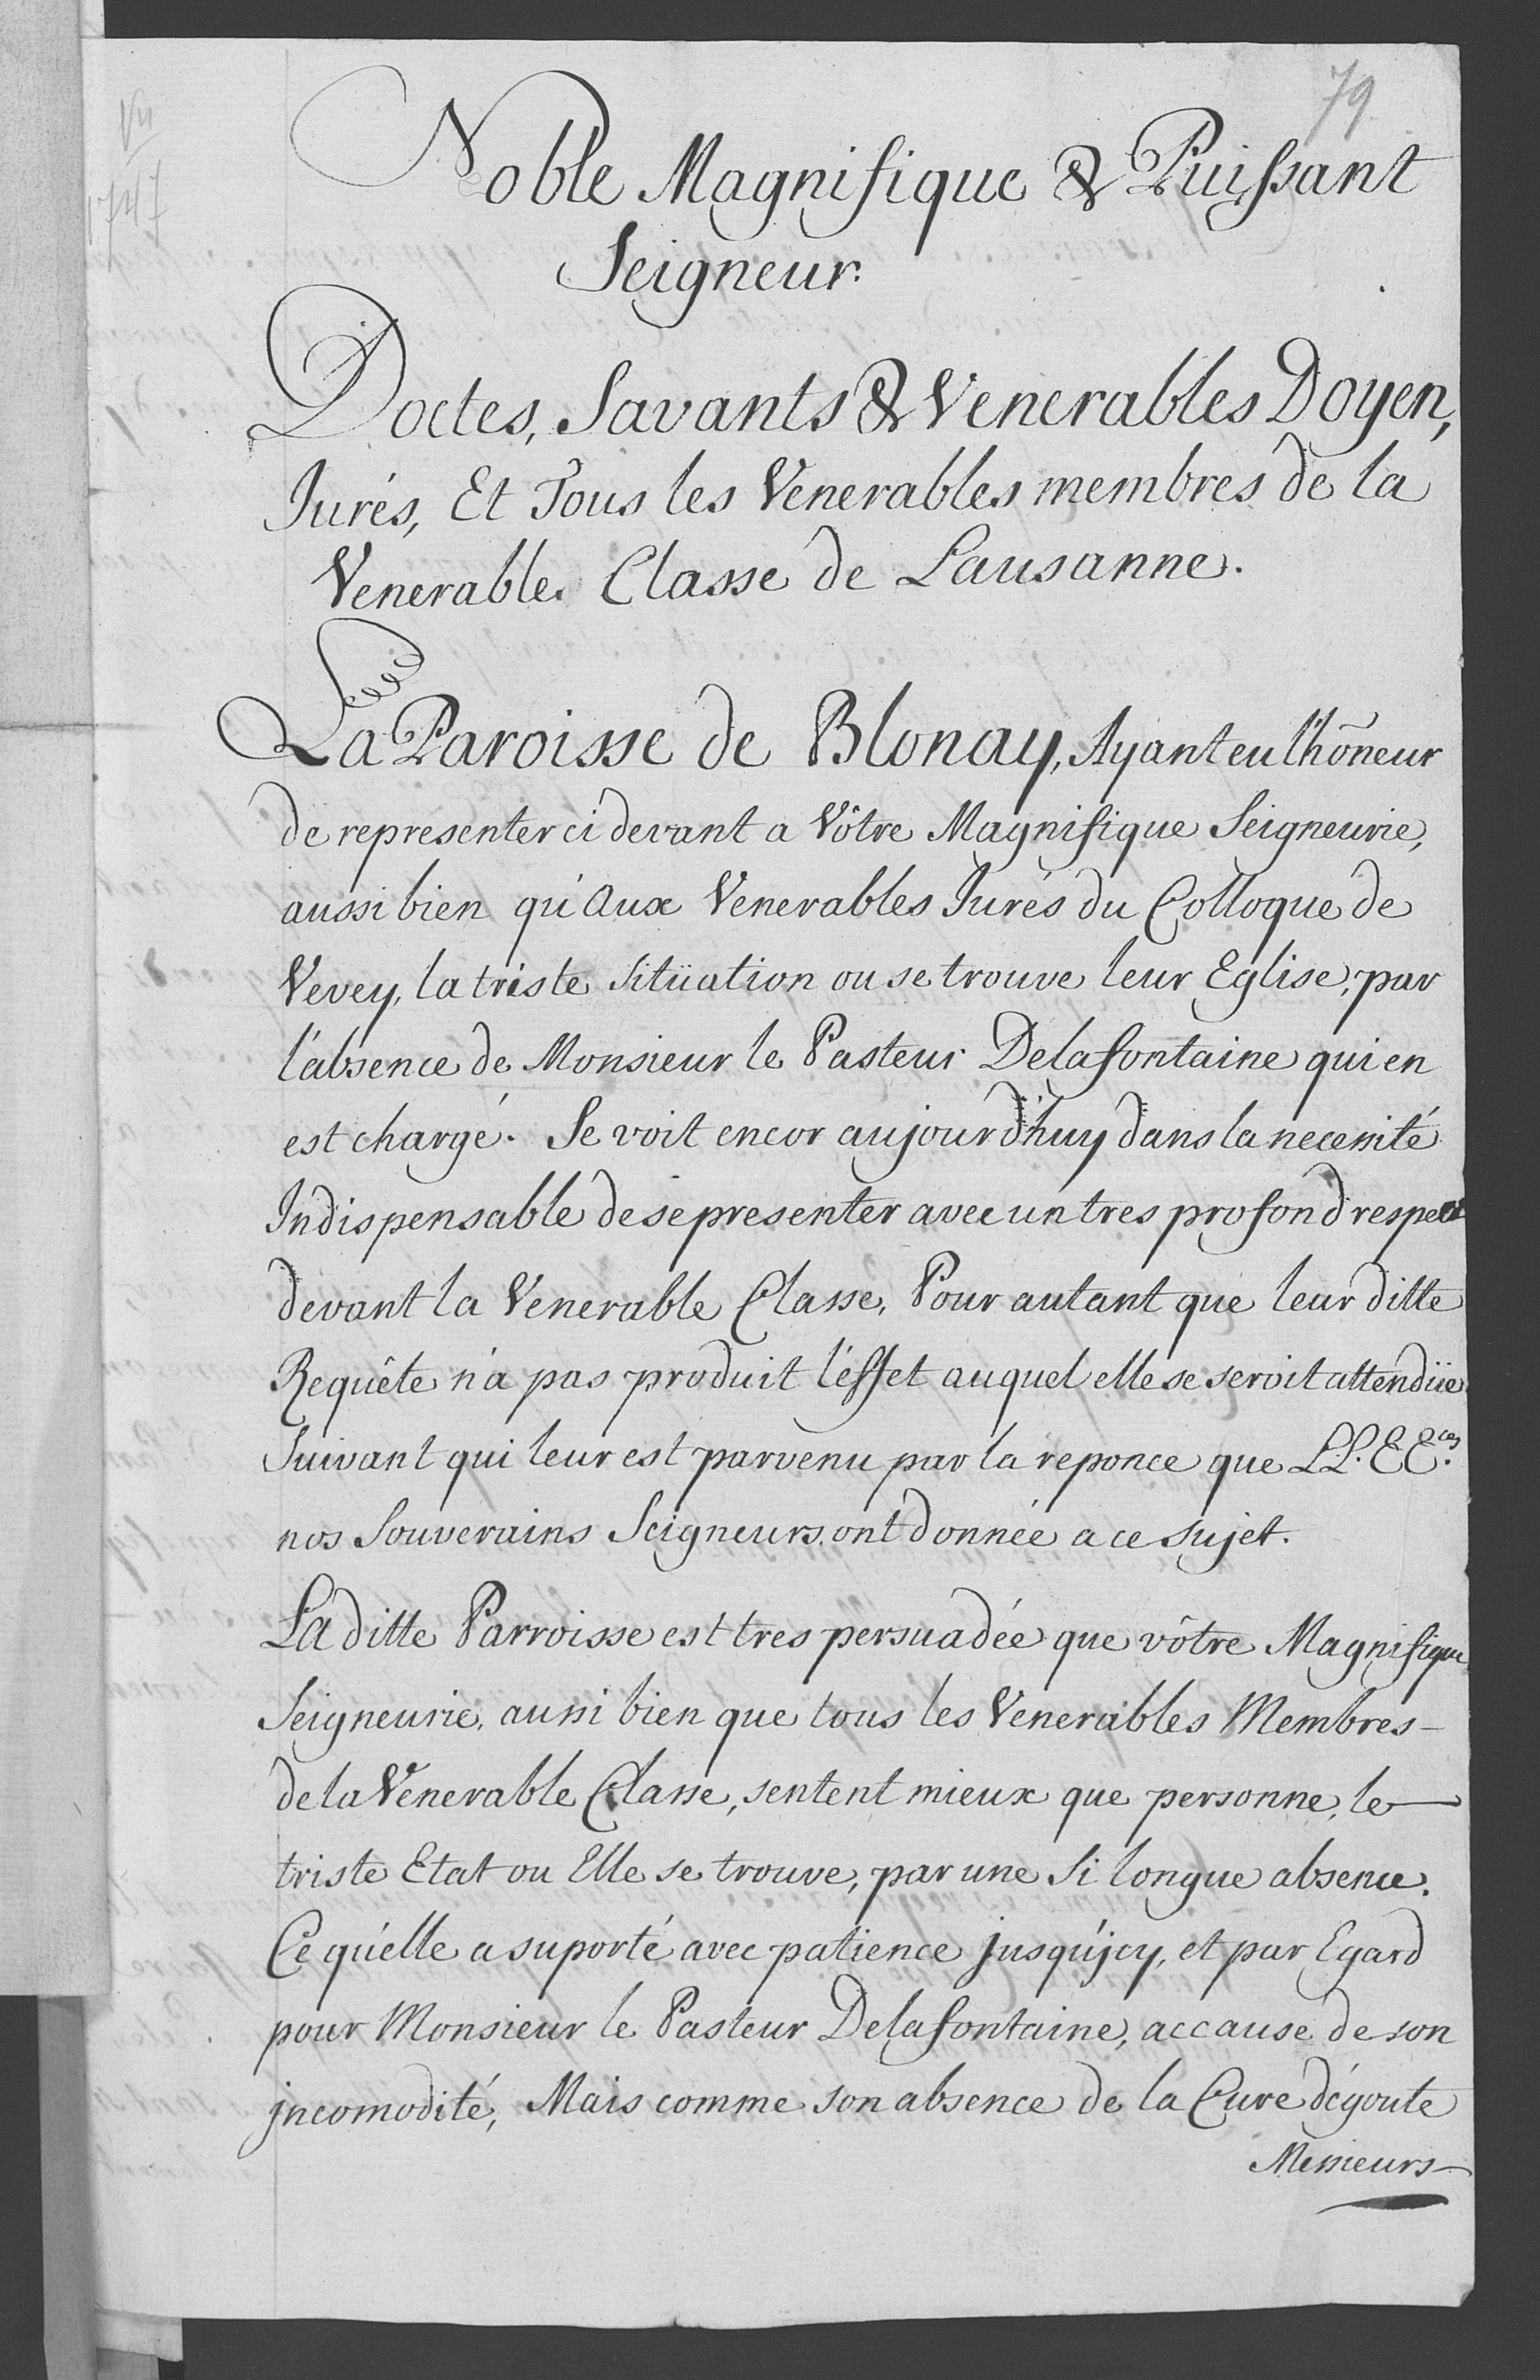 79
1747
Noble Magnifique & Puissant
Seigneur.
Doctes, Savants & Venerables Doyen,
Jurés, Et Tous les Venerables membres de la
Venerable Classe de Lausanne.
La Paroisse de Blonay, Ayant eu l'hõneur
de representer ci devant a Vôtre Magnifique Seigneurie,
aussi bien qu'aux Venerables Jurés du Colloque de
Vevey, la triste sitüation ou se trouve leur Eglise, par
l'absence de Monsieur le Pasteur Delafontaine qui en
est chargé. Se voit encor aujourd'huy dans la necessité
Indispensable de se presenter avec un tres profond respect
devant la Venerable Classe, Pour autant que leur ditte
Requête n'a pas produit l'effet auquel elle se seroit attendüe
Suivant qui leur est parvenu par la reponce que LL. EE.ces
nos Souverains Seigneurs ont donnée a ce sujet.
La ditte Parroisse est tres persuadée que vôtre Magnifique
Seigneurie, aussi bien que tous les Venerables Membres -
de la Venerable Classe, sentent mieux que personne, le
triste Etat ou Elle se trouve, par une si longue absence.
Ce qu'elle a suporté avec patience jusqu'jcy, et par Egard
pour Monsieur le Pasteur Delafontaine, accause de son
jncomodité, Mais comme son absence de la Cure dégoute
Messieurs